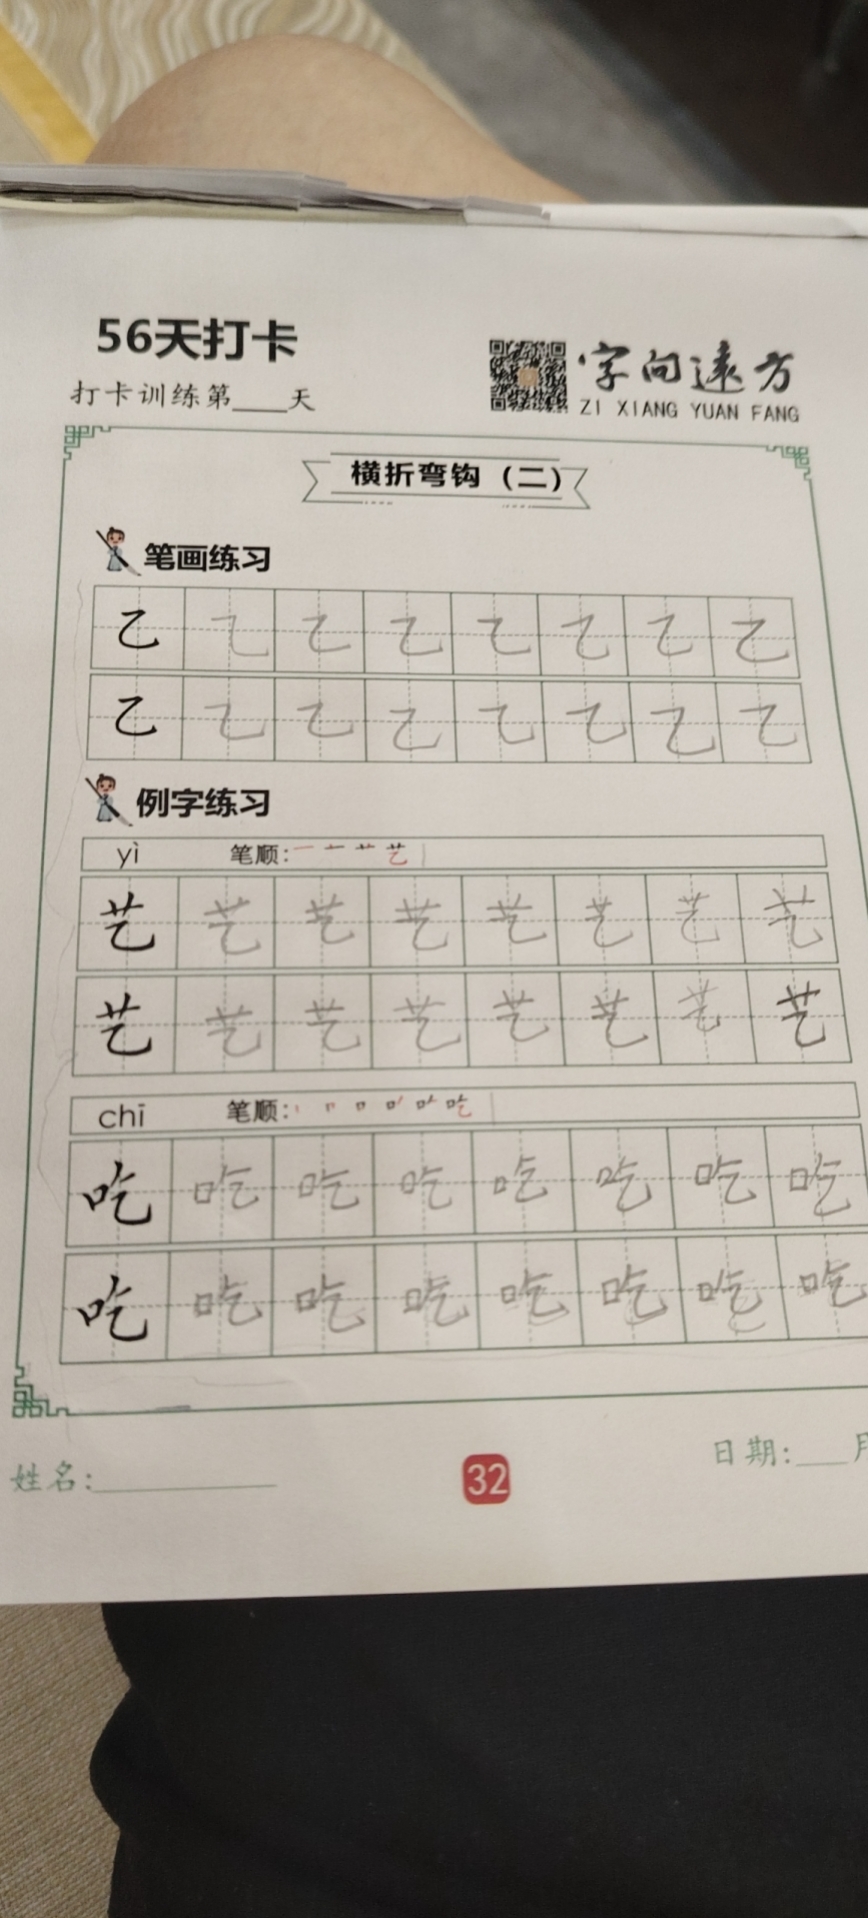 56天打卡
打卡训练第___天
字向远方
ZI XIANG YUAN FANG
横折弯钩（二）
笔画练习
乙 乙 乙 乙 乙 乙 乙 乙
乙 乙 乙 乙 乙 乙 乙 乙
例字练习
yì 笔顺: 一 艹 艺
艺 艺 艺 艺 艺 艺 艺 艺
艺 艺 艺 艺 艺 艺 艺 艺
chī 笔顺: 丨 口 吃
吃 吃 吃 吃 吃 吃 吃 吃
吃 吃 吃 吃 吃 吃 吃 吃
姓名:
32
日期:___月